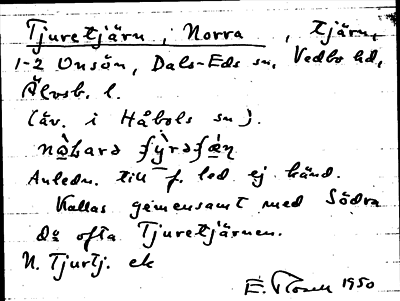 Tjuretjärn, Norra, tjärn,
1-2 Onsön, Dals-Eds sn, Vedbo hd,
Älvsb. l.
(äv. i Håbols sn).
Anledn. till f. led ej känd.
Kallas gemensamt med Södra
do ofta Tjuretjärnen.
N. Tjurtj. ek
E. Rosell 1950